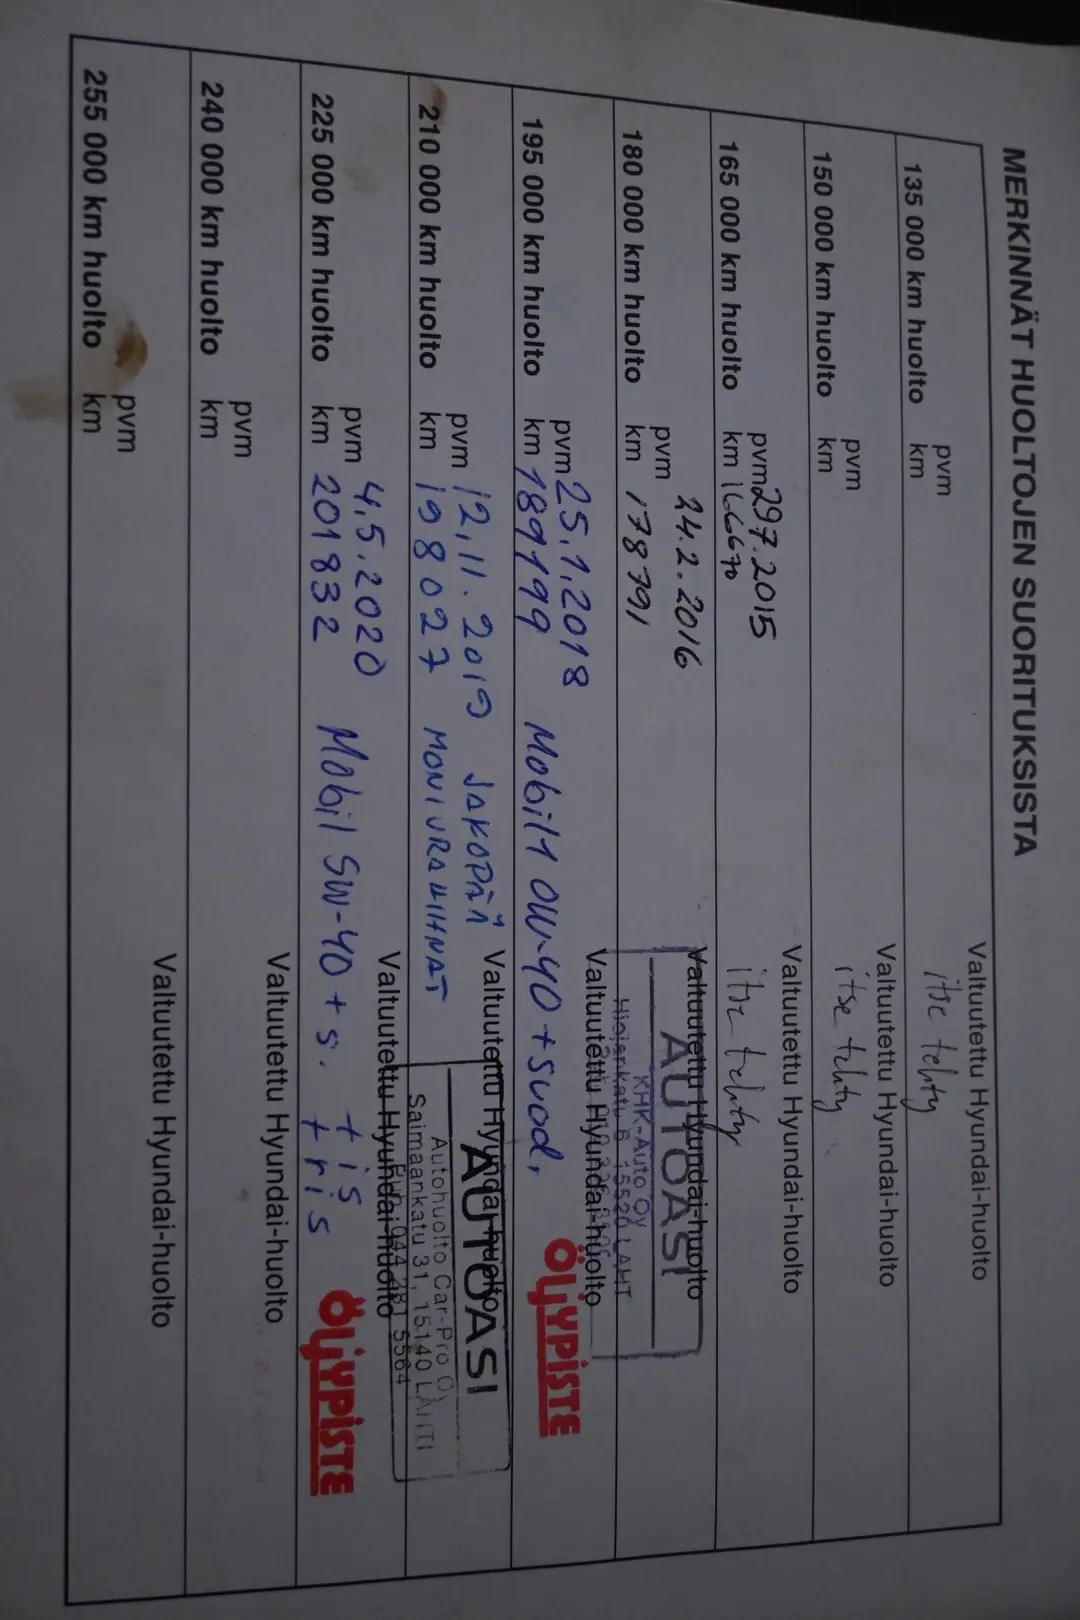 MERKINNÄT HUOLTOJEN SUORITUKSISTA
135 000 km huolto pvm Valtuutettu Hyundai-huolto
km itse tehty
150 000 km huolto pvm Valtuutettu Hyundai-huolto
km itse tehty
165 000 km huolto pvm 29.7.2015 Valtuutettu Hyundai-huolto
km 166670 itse tehty
180 000 km huolto pvm 24.2.2016 Valtuutettu Hyundai-huolto
km 178791
AUTOASI
KHK-Auto Oy
195 000 km huolto pvm 25.1.2018 Valtuutettu Hyundai-huolto
km 189199 Mobil1 0W-40 + suod. ÖLJYPISTE
210 000 km huolto pvm 12.11.2019 JAKOPÄÄ Valtuutettu Hyundai-huolto
km 198027 MONIURAHIHNAT
AUTOASI
Autohuolto Car-Pro Oy
Saimaankatu 31, 15140 LAHTI
Puh. 044 281 5564
225 000 km huolto pvm 4.5.2020 Valtuutettu Hyundai-huolto
km 201832 Mobil 5W-40 + s. + is
+ ris ÖLJYPISTE
240 000 km huolto pvm Valtuutettu Hyundai-huolto
km
255 000 km huolto pvm Valtuutettu Hyundai-huolto
km